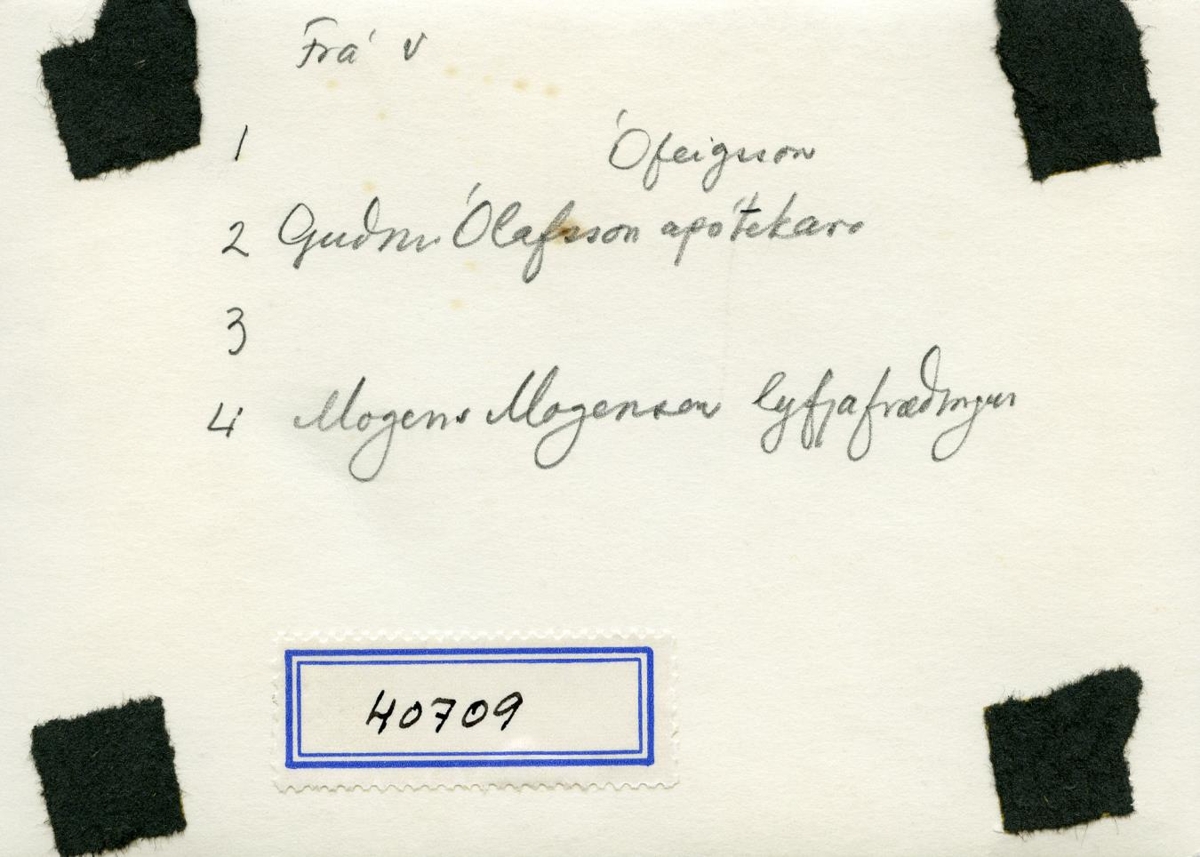 Frá v
1 Ófeigsson
2 Guðm. Ólafsson apótekari
3
4 Mogens Mogensen lyfjafræðingur
40709